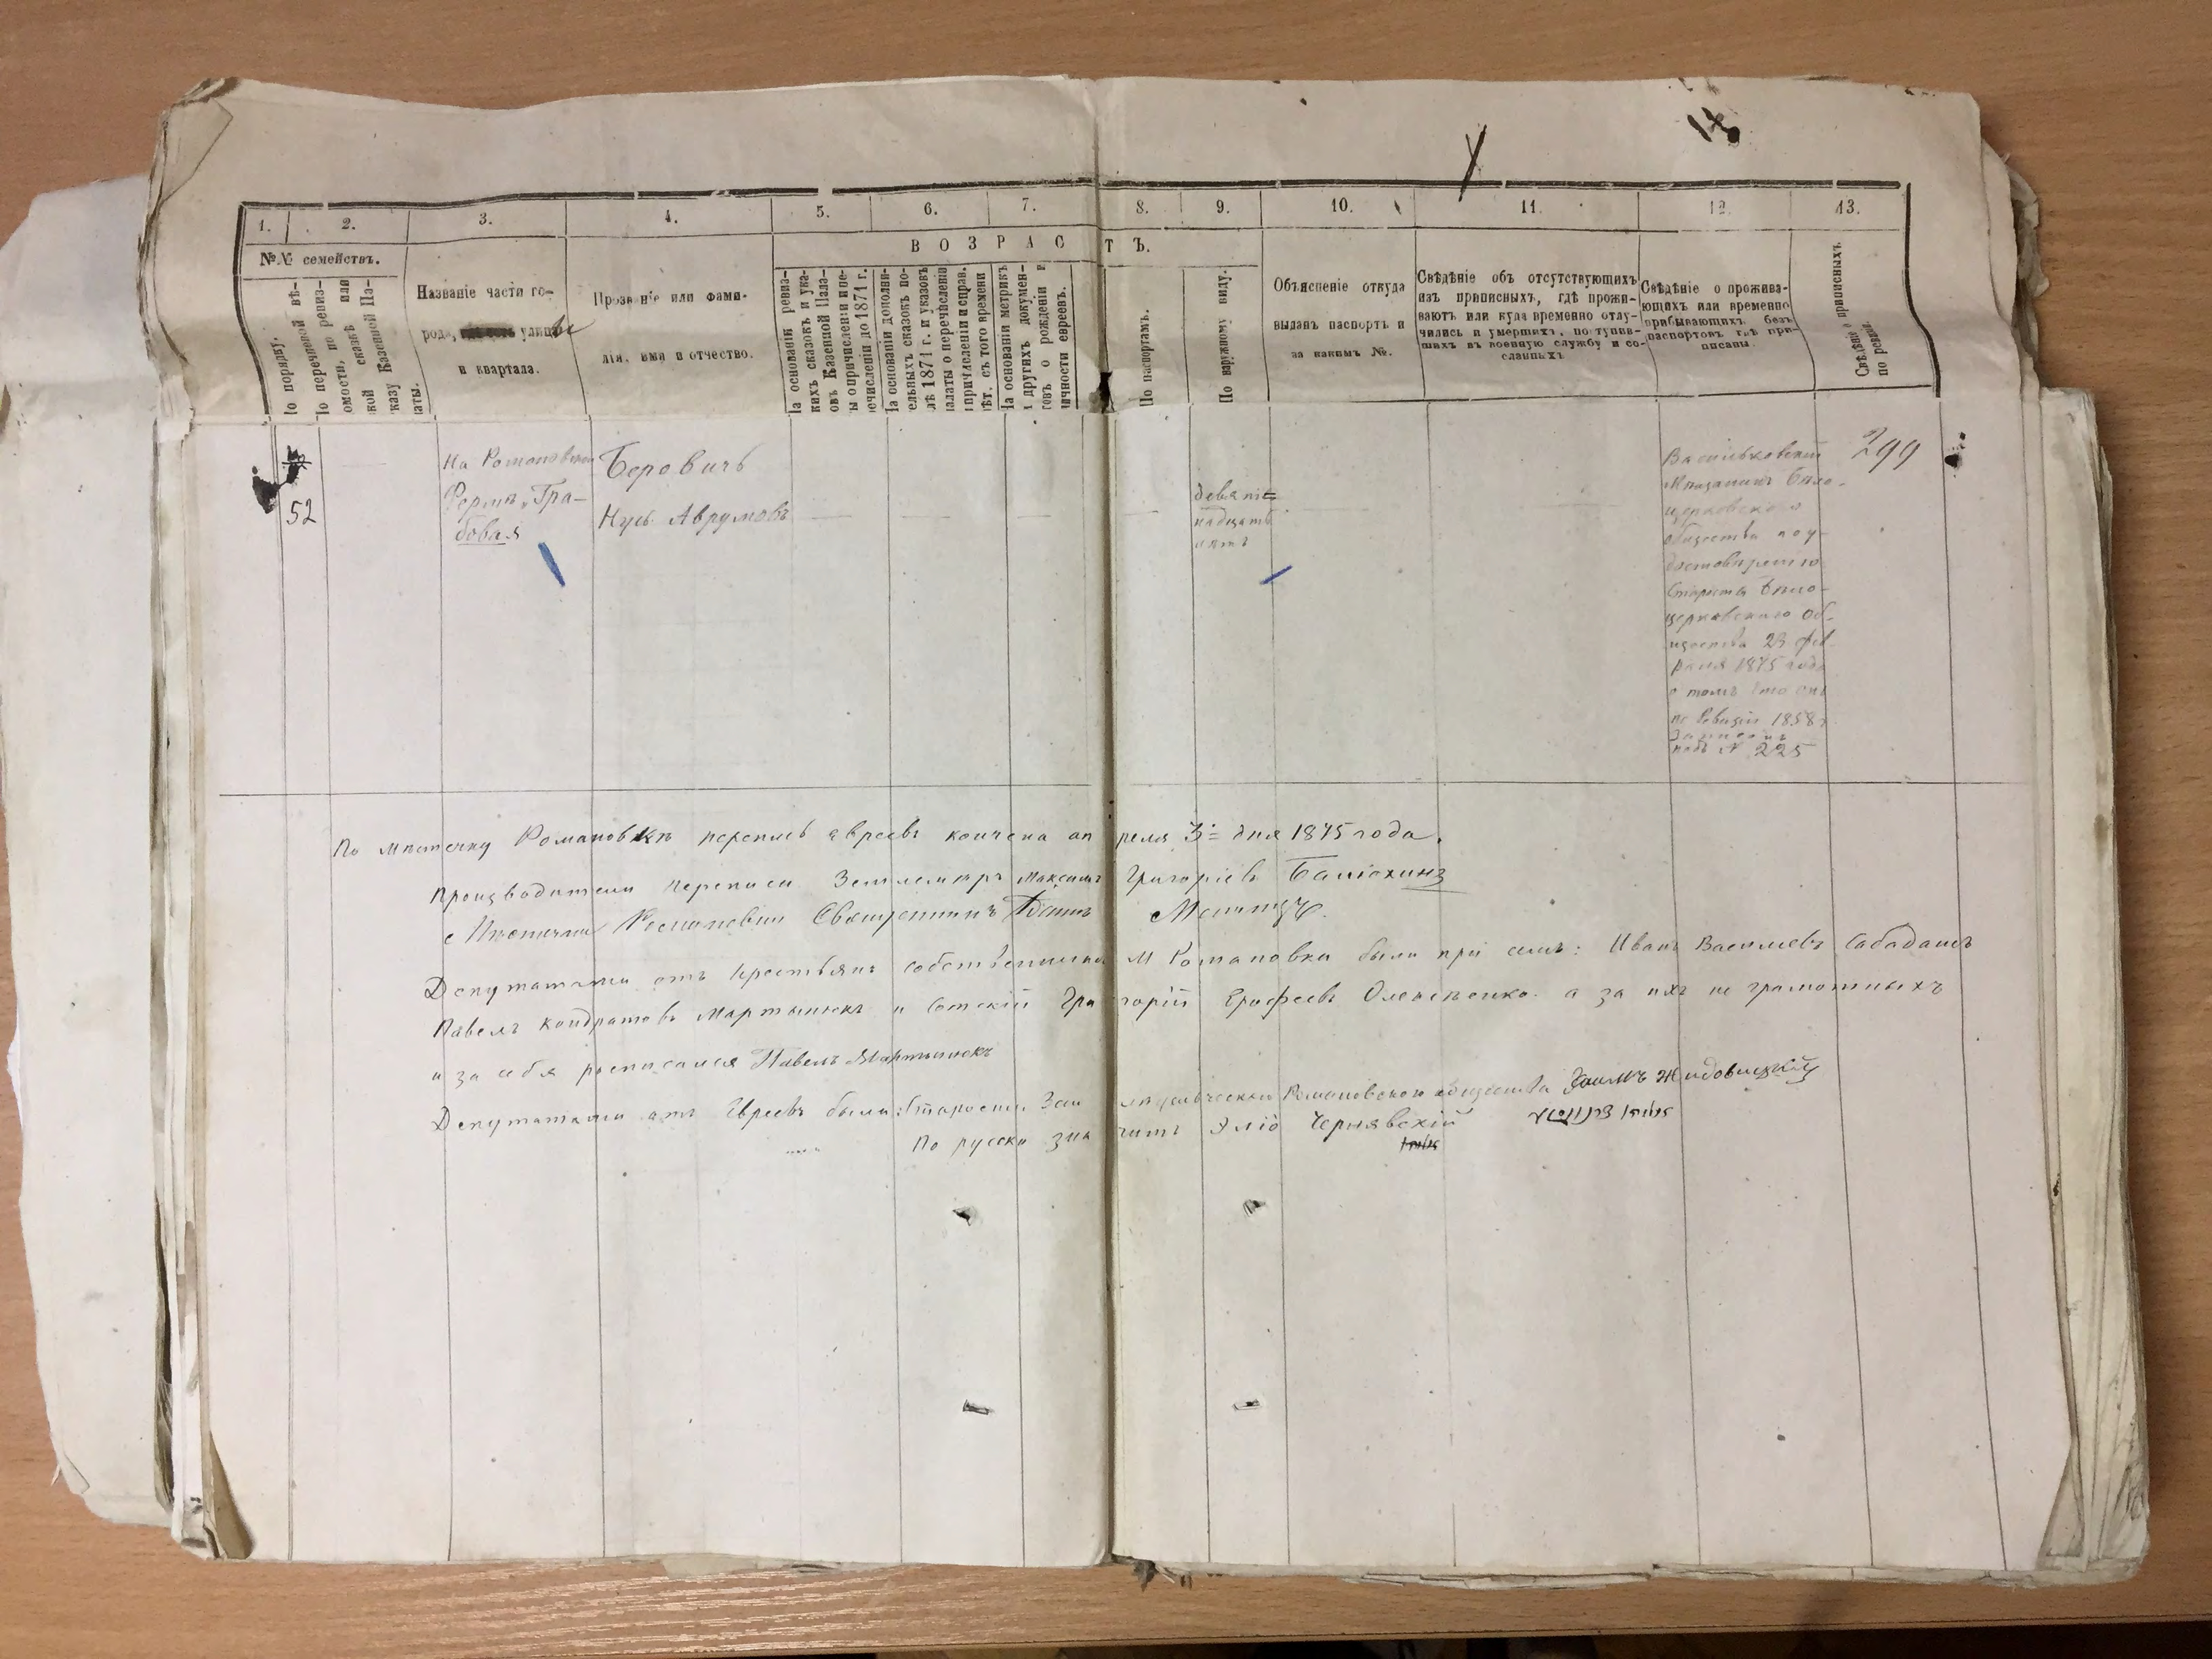 1. 2. 3. 4. 5. 6. 7. 8. 9. 10. 11. 12. 13.
№№ семействъ.
В О З Р А С Т Ъ.
Названіе части го-
рода, улицы
и квартала.
Прозваніе или фами-
лія, имя и отчество.
На основаніи ревиз-
скихъ сказокъ и ука-
овъ Казенной Пала-
ты о причисленіи и пе-
речисленіи до 1871 г.
На основаніи дополни-
тельныхъ сказокъ по-
слѣ 1871 г. и указовъ
палаты о перечисленіи
и причисленіи и справ.
лѣт. съ того времени
На основаніи метрикъ
и другихъ докумен-
товъ о рожденіи и
личности евреевъ.
По порядку.
По паспортамъ.
По наружному виду.
Объясненіе откуда
выданъ паспортъ и
за какимъ №.
Свѣдѣніе объ отсутствующихъ
изъ приписныхъ, гдѣ прожи-
ваютъ или куда временно отлу-
чились и умершихъ, поступив-
шихъ въ военную службу и со-
сланныхъ
Свѣдѣніе о прожива-
ющихъ или временно
прибывающихъ безъ
паспортовъ гдѣ при-
писаны.
Свѣдѣніе о приписныхъ
по ревиз.
52
На Романовской
Фермѣ, Гра-
бовая
Беровичъ
Нусь Аврумовъ
девят=
надцать
лѣтъ
Васильковскій
Мѣщанинъ Бѣло-
церковского
общества по у-
достовѣренію
Старосты Бѣло-
церковского Об-
щества 23 фев-
раля 1875 года
о томъ что онъ
по ревизіи 1858 г
записанъ
подъ № 225
299
По мѣстечку Романовкѣ перепись евреевъ кончена апреля 3= дня 1875 года.
Производители переписи Землемѣръ Максимъ Григоріевъ
Священникъ
Депутатами отъ крестьянъ собственниковъ М Романовки были при семъ: Иванъ Василіевъ Сабадашъ
Павелъ Кондратовъ Мартынюкъ и Сотскій Григорій Ерофеевъ Олексѣенко а за ихъ не грамотныхъ
и за себя росписался Павелъ Мартынюкъ
Депутатами отъ Евреевъ были: Староста Романовского общества Хаимъ
По русски значитъ Эліо Чернявскій